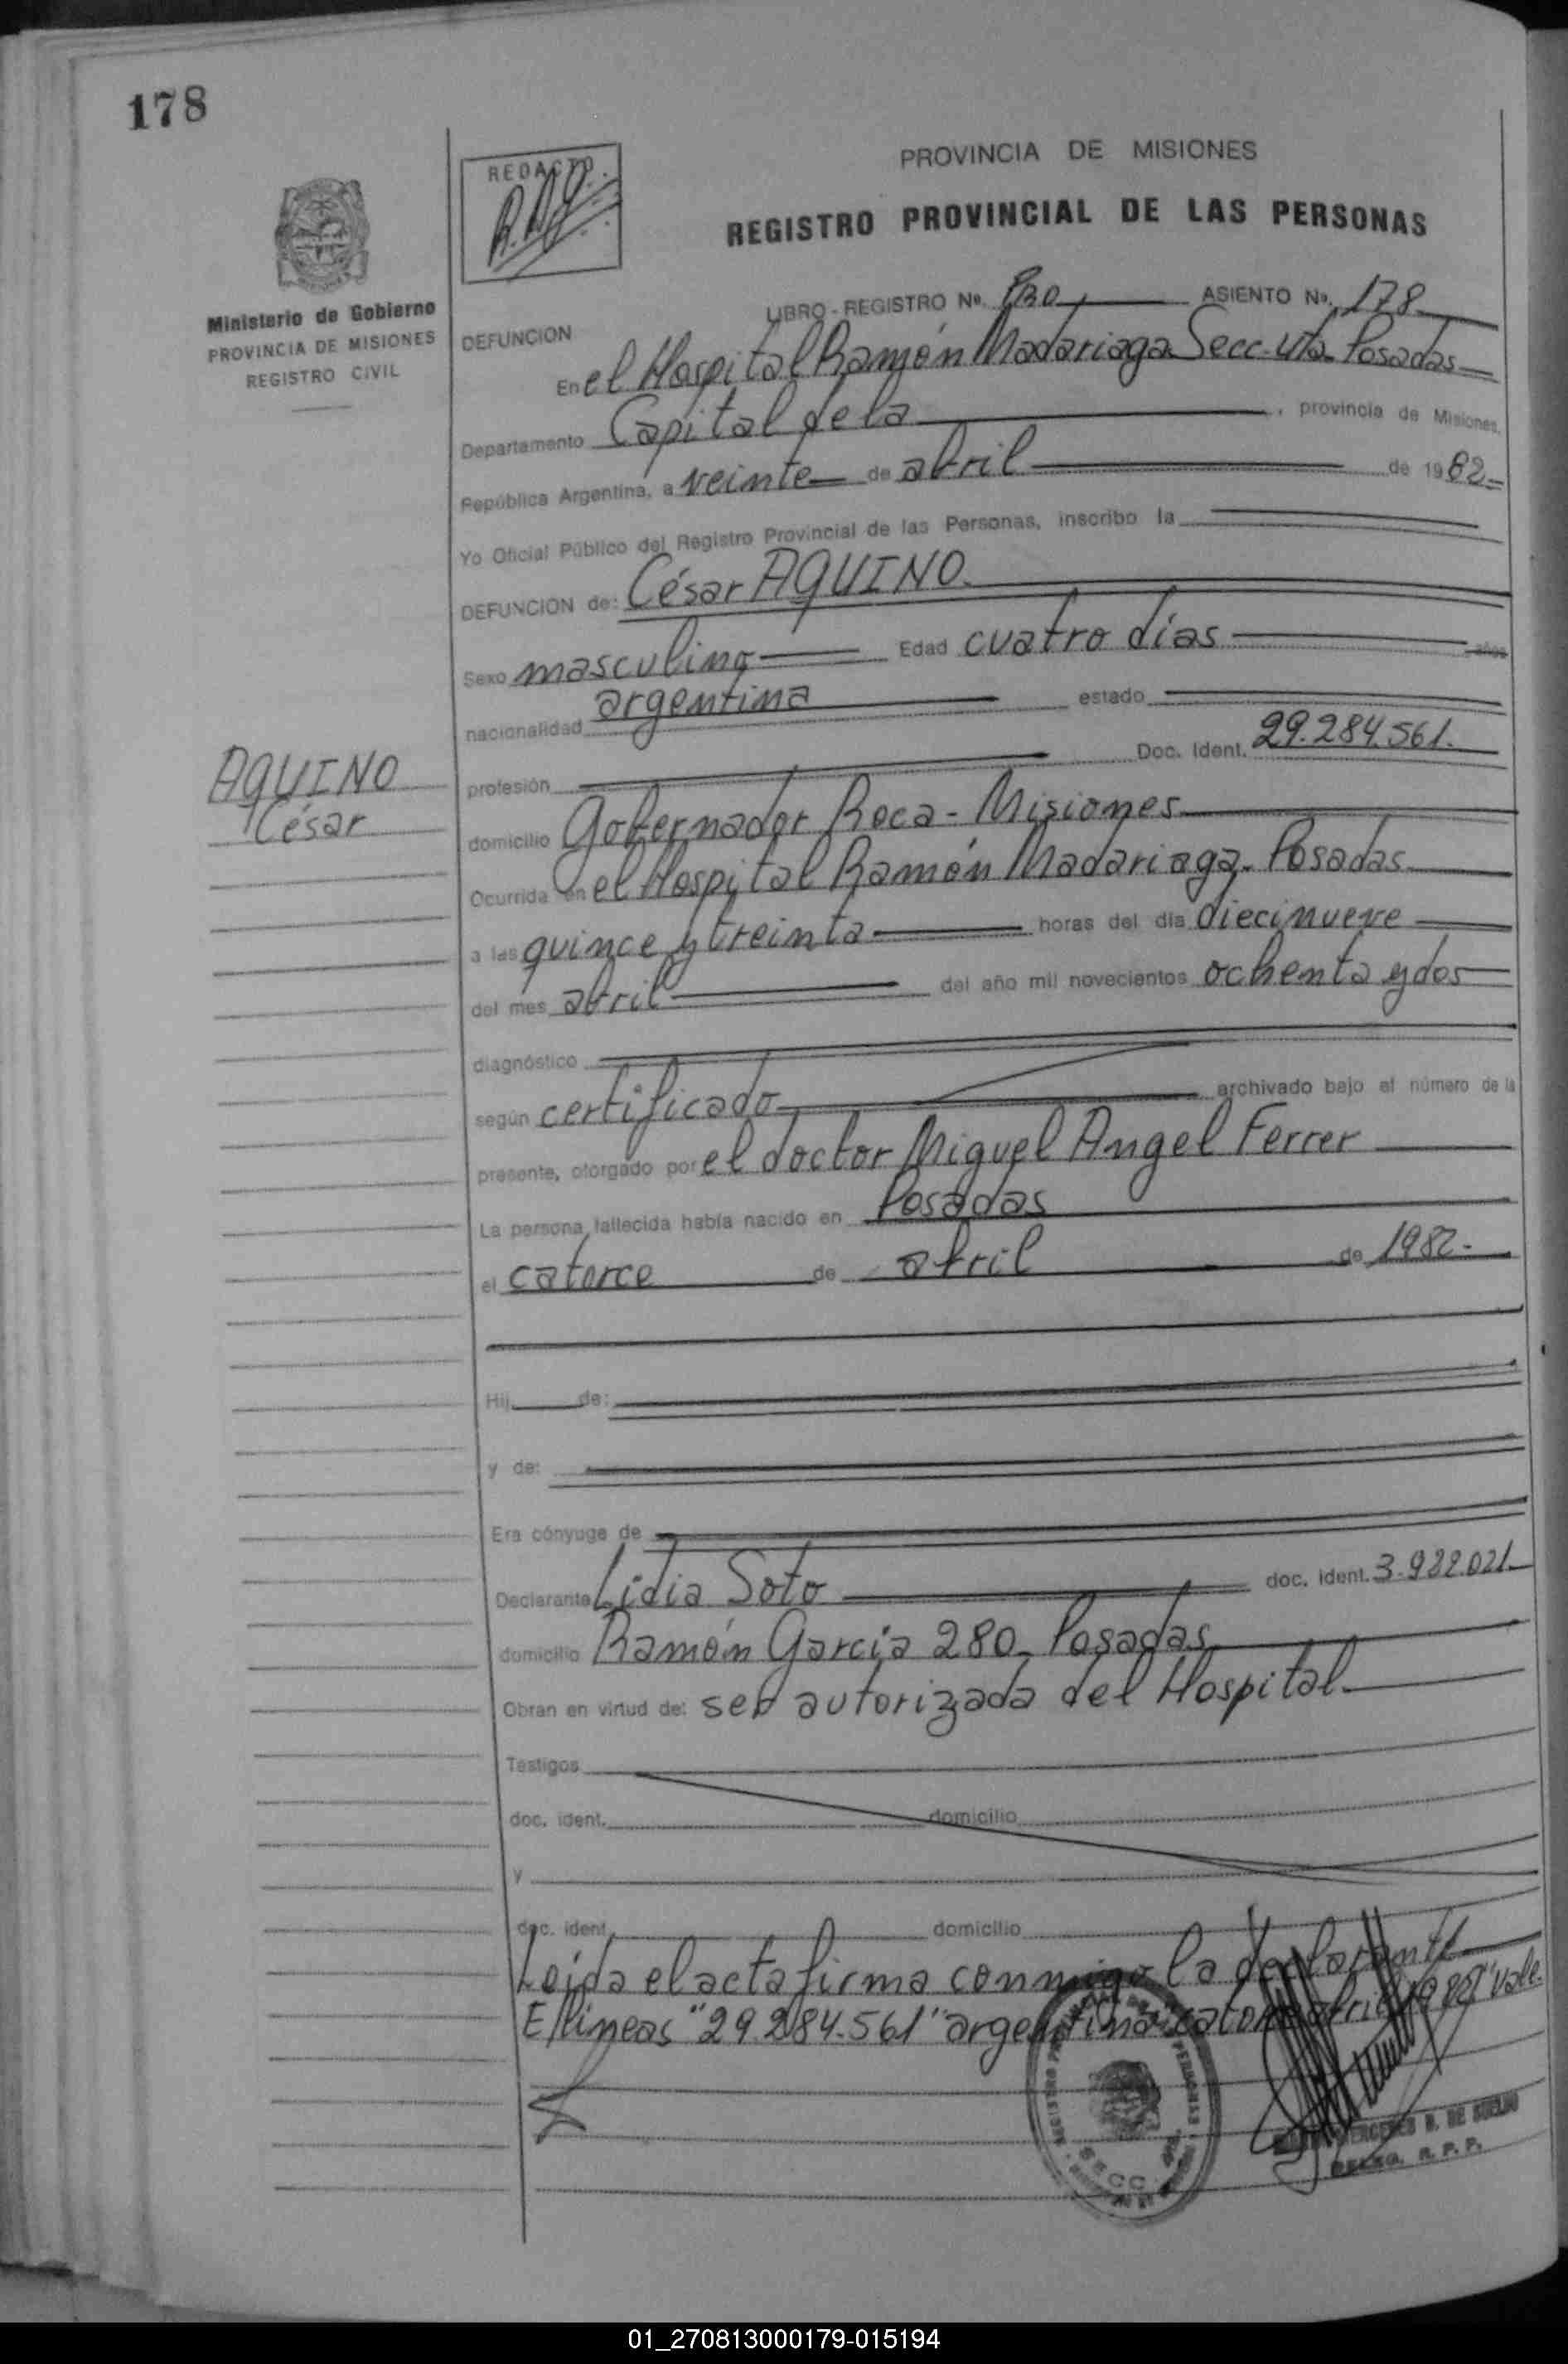 178
REDACTO
PROVINCIA DE MISIONES
REGISTRO PROVINCIAL DE LAS PERSONAS
Ministerio de Gobierno
PROVINCIA DE MISIONES
REGISTRO CIVIL
LIBRO - REGISTRO Nº. ASIENTO Nº. 178
DEFUNCION
En el Hospital Ramón Madariaga Secc. 4ta. Posadas
Departamento Capital de la , provincia de Misiones,
República Argentina, a veinte de abril de 1982
Yo Oficial Público del Registro Provincial de las Personas, inscribo la
DEFUNCION de: César AQUINO.
Sexo masculino Edad cuatro días años
nacionalidad argentina estado
profesión Doc. Ident. 29.284.561.
AQUINO
César
domicilio Gobernador Roca - Misiones
Ocurrida en el Hospital Ramón Madariaga. Posadas
a las quince y treinta horas del día diecinueve
del mes abril del año mil novecientos ochenta y dos
diagnóstico
según certificado archivado bajo el número de la
presente, otorgado por el doctor Miguel Angel Ferrer
La persona fallecida había nacido en Posadas
el catorce de abril de 1982.
Hij de:
y de:
Era cónyuge de
Declarante Lidia Soto doc. ident. 3.922.021
domicilio Ramón García 280. Posadas
Obran en virtud de: ser autorizada del Hospital
Testigos
doc. ident. domicilio
y
doc. ident. domicilio
Leída el acta firma conmigo la declarante
E/líneas "29.284.561" argentina catorce abril 1982" vale.
SECC.
DE
DELEG. R. P. P.
01_270813000179-015194